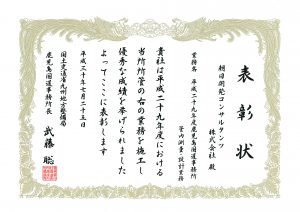 表彰状
朝日開発コンサルタンツ
株式会社 殿
業務名 平成二十九年度鹿児島国道事務所
管内測量・設計業務
貴社は平成二十九年度における
当所所管の右の業務を施工し
優秀な成績を挙げられました
よってここに表彰します
平成三十年七月二十五日
国土交通省九州地方整備局
鹿児島国道事務所長
武藤 聡